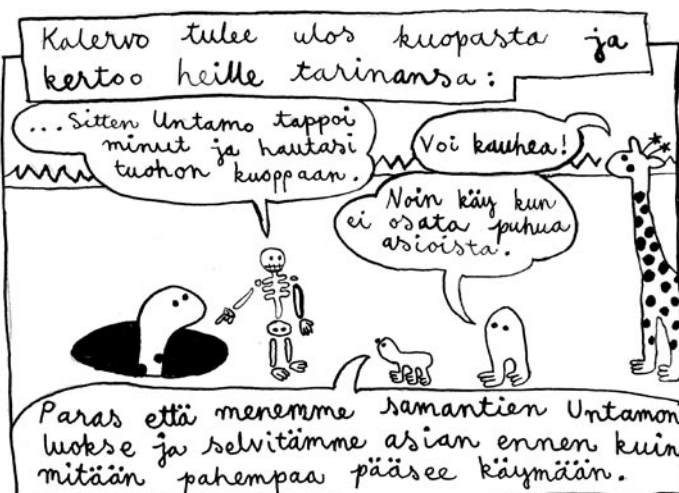 Kalervo tulee ulos kuopasta ja
kertoo heille tarinansa:
...Sitten Untamo tappoi
minut ja hautasi
tuohon kuoppaan.
Voi kauhea!
Noin käy kun
ei osata puhua
asioista.
Paras että menemme samantien Untamon
luokse ja selvitämme asian ennen kuin
mitään pahempaa pääsee käymään.